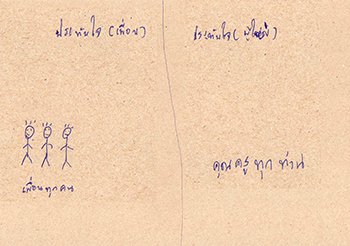 ประทับใจ (เพื่อน)
เพื่อนทุกคน
ประทับใจ (ผู้ใหญ่)
คุณครูทุกท่าน